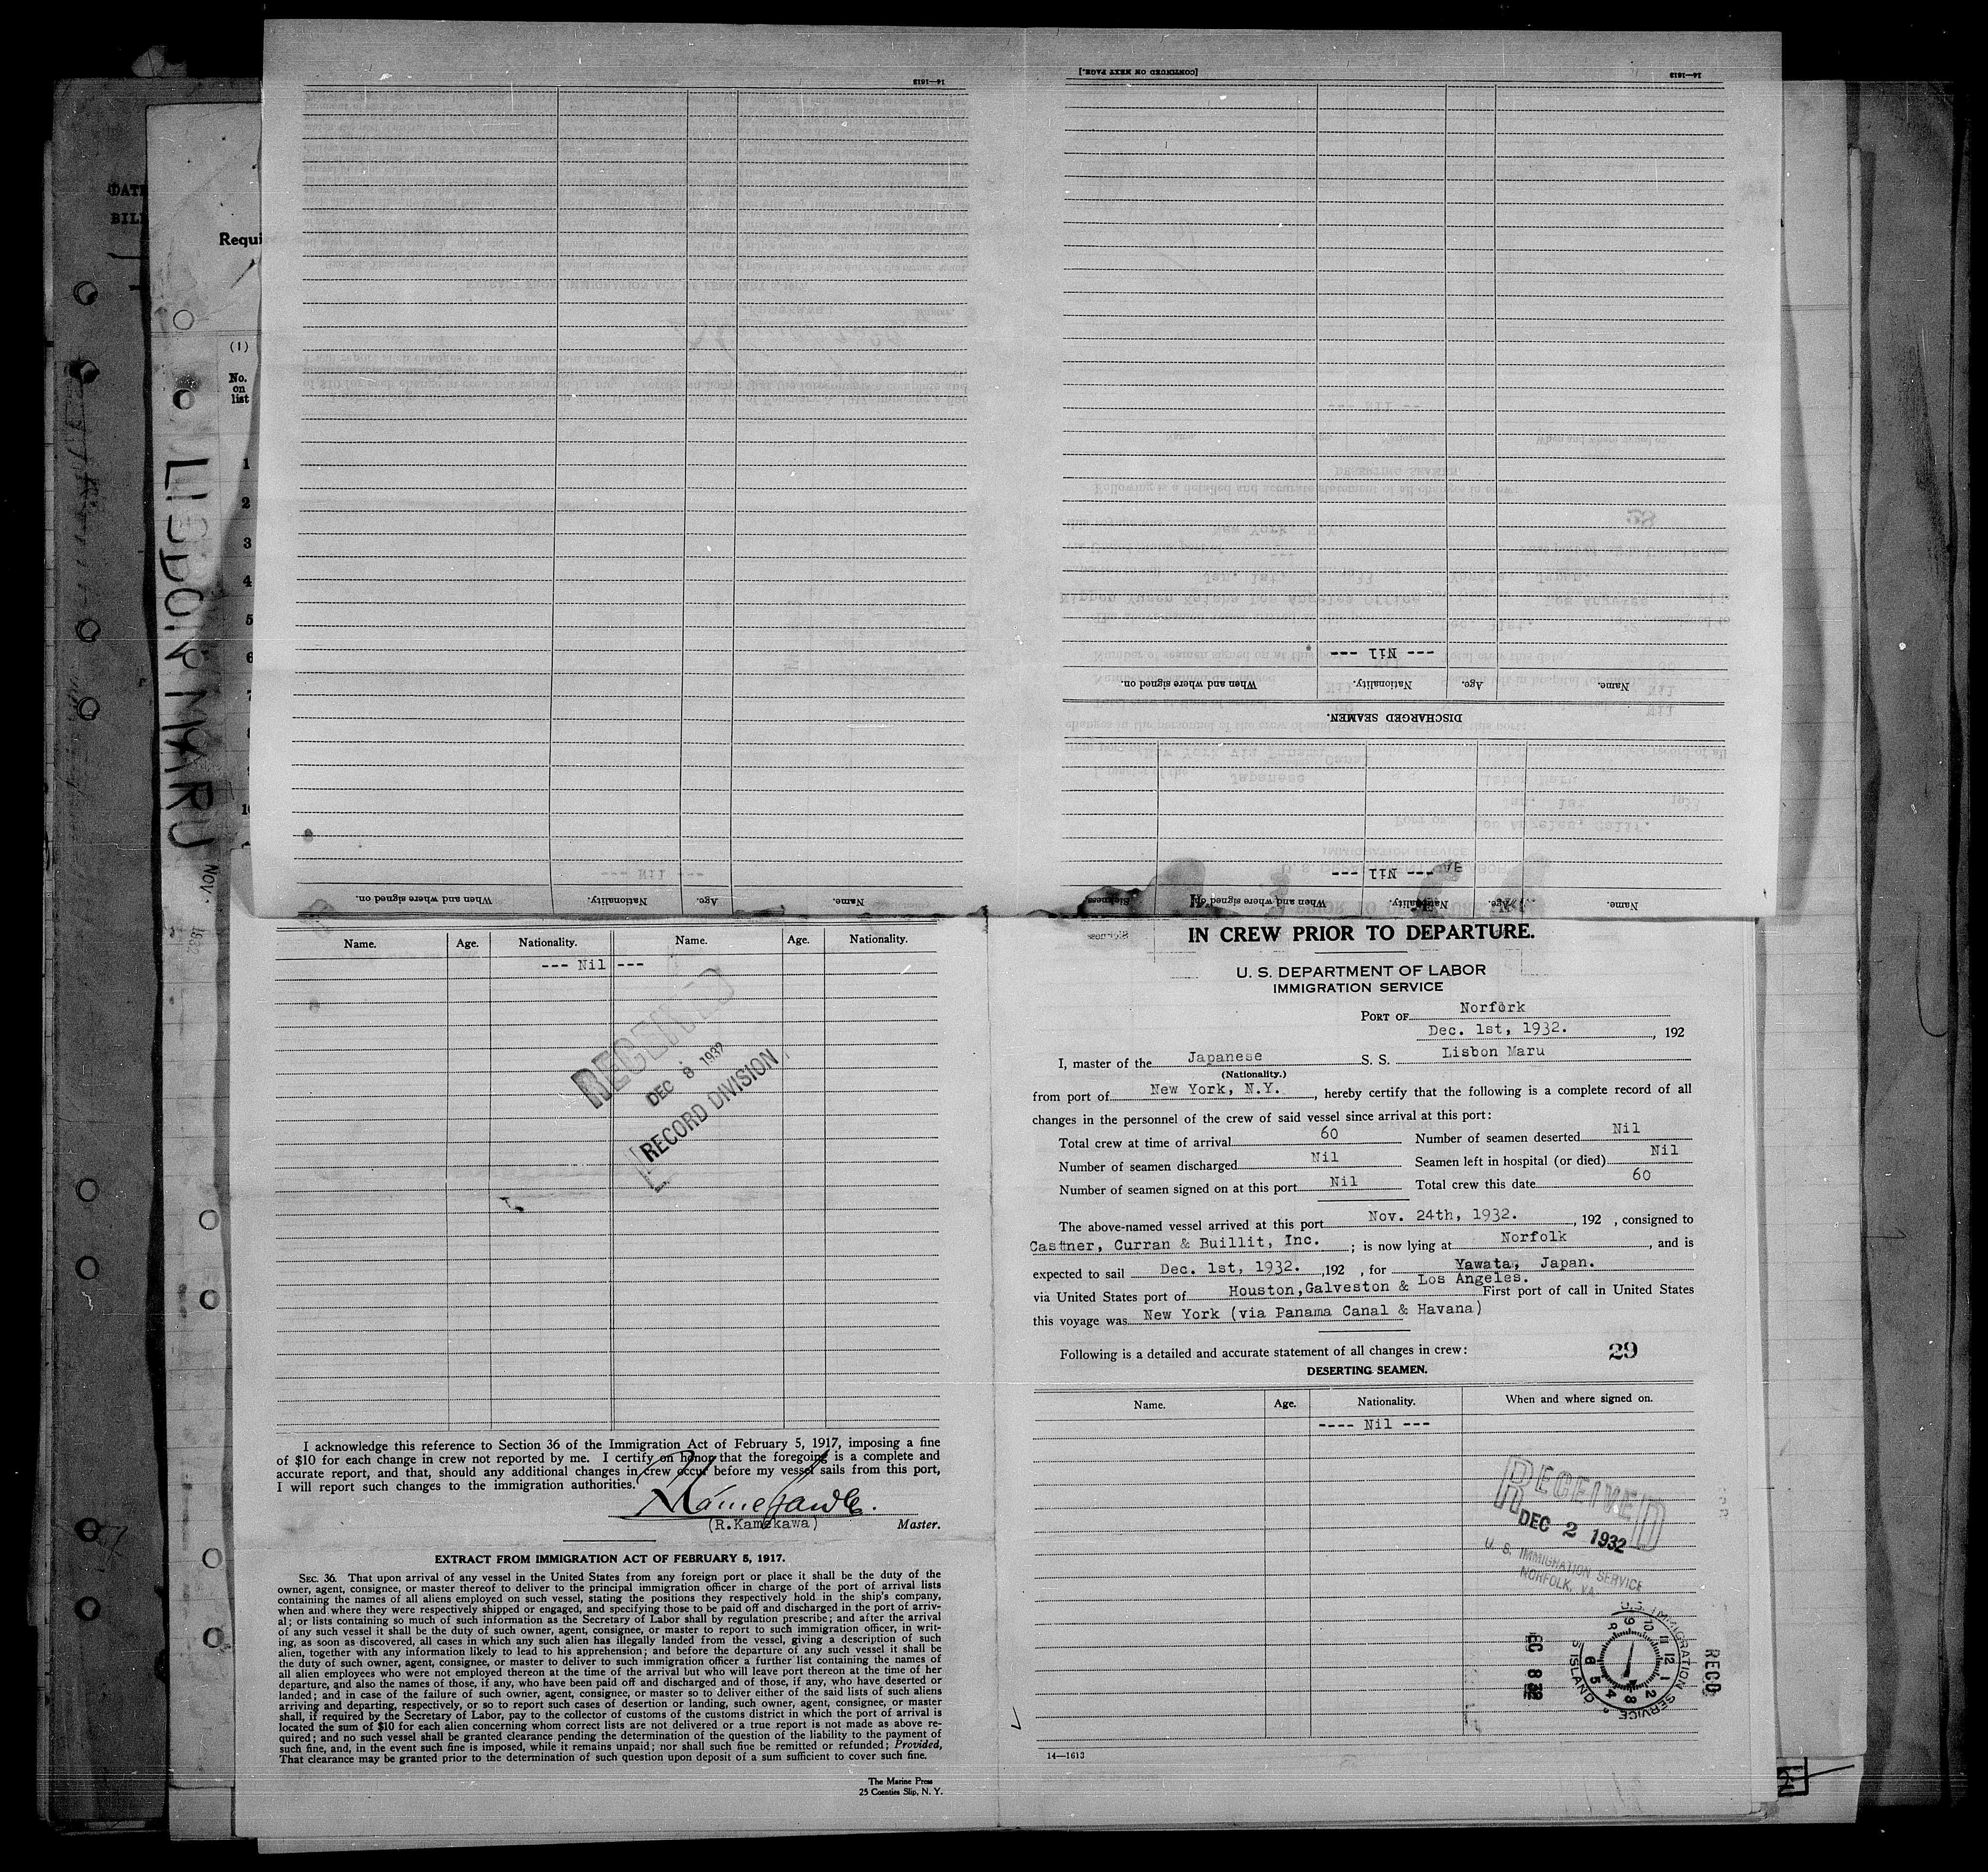 14—1613
[CONTINUED ON NEXT PAGE.]
14—1613
DATE
BILL
Requi
(1)
No.
on
list
1
2
3
4
5
6
7
8
10
LISBON MARU
NOV.
1932
--- Nil ---
Name. Age. Nationality. When and where signed on.
DISCHARGED SEAMEN.
--- Nil ---
Name. Age. Nationality. When and where signed on.
--- Nil ---
Name. Age. Nationality. When and where signed on. Sickness
Name. Age. Nationality. Name. Age. Nationality.
--- Nil ---
RECEIVED
DEC 8 1932
RECORD DIVISION
I acknowledge this reference to Section 36 of the Immigration Act of February 5, 1917, imposing a fine
of $10 for each change in crew not reported by me. I certify on honor that the foregoing is a complete and
accurate report, and that, should any additional changes in crew occur before my vessel sails from this port,
I will report such changes to the immigration authorities.
(R.Kamekawa) Master.
EXTRACT FROM IMMIGRATION ACT OF FEBRUARY 5, 1917.
SEC. 36. That upon arrival of any vessel in the United States from any foreign port or place it shall be the duty of the
owner, agent, consignee, or master thereof to deliver to the principal immigration officer in charge of the port of arrival lists
containing the names of all aliens employed on such vessel, stating the positions they respectively hold in the ship's company,
when and where they were respectively shipped or engaged, and specifying those to be paid off and discharged in the port of arriv-
al; or lists containing so much of such information as the Secretary of Labor shall by regulation prescribe; and after the arrival
of any such vessel it shall be the duty of such owner, agent, consignee, or master to report to such immigration officer, in writ-
ing, as soon as discovered, all cases in which any such alien has illegally landed from the vessel, giving a description of such
alien, together with any information likely to lead to his apprehension; and before the departure of any such vessel it shall be
the duty of such owner, agent, consignee, or master to deliver to such immigration officer a further list containing the names of
all alien employees who were not employed thereon at the time of the arrival but who will leave port thereon at the time of her
departure, and also the names of those, if any, who have been paid off and discharged and of those, if any, who have deserted or
landed; and in case of the failure of such owner, agent, consignee, or master so to deliver either of the said lists of such aliens
arriving and departing, respectively, or so to report such cases of desertion or landing, such owner, agent, consignee, or master
shall, if required by the Secretary of Labor, pay to the collector of customs of the customs district in which the port of arrival is
located the sum of $10 for each alien concerning whom correct lists are not delivered or a true report is not made as above re-
quired; and no such vessel shall be granted clearance pending the determination of the question of the liability to the payment of
such fine, and, in the event such fine is imposed, while it remains unpaid; nor shall such fine be remitted or refunded; Provided,
That clearance may be granted prior to the determination of such question upon deposit of a sum sufficient to cover such fine.
The Marine Press
25 Coenties Slip, N. Y.
IN CREW PRIOR TO DEPARTURE.
U. S. DEPARTMENT OF LABOR
IMMIGRATION SERVICE
PORT OF Norfork
Dec. 1st, 1932. , 192
I, master of the Japanese S. S. Lisbon Maru
(Nationality.)
from port of New York, N.Y. , hereby certify that the following is a complete record of all
changes in the personnel of the crew of said vessel since arrival at this port:
Total crew at time of arrival 60 Number of seamen deserted Nil
Number of seamen discharged Nil Seamen left in hospital (or died) Nil
Number of seamen signed on at this port Nil Total crew this date 60
The above-named vessel arrived at this port Nov. 24th, 1932. , 192 , consigned to
Castner, Curran & Buillit, Inc. ; is now lying at Norfolk , and is
expected to sail Dec. 1st, 1932. ,192 , for Yawata, Japan.
via United States port of Houston,Galveston & Los Angeles. First port of call in United States
this voyage was New York (via Panama Canal & Havana)
Following is a detailed and accurate statement of all changes in crew: 29
DESERTING SEAMEN.
Name. Age. Nationality. When and where signed on.
---- Nil ---
RECEIVED
DEC 2 1932
U. S. IMMIGRATION SERVICE
NORFOLK, VA
U.S. IMMIGRATION SERVICE
ISLAND
REC'D
14—1613